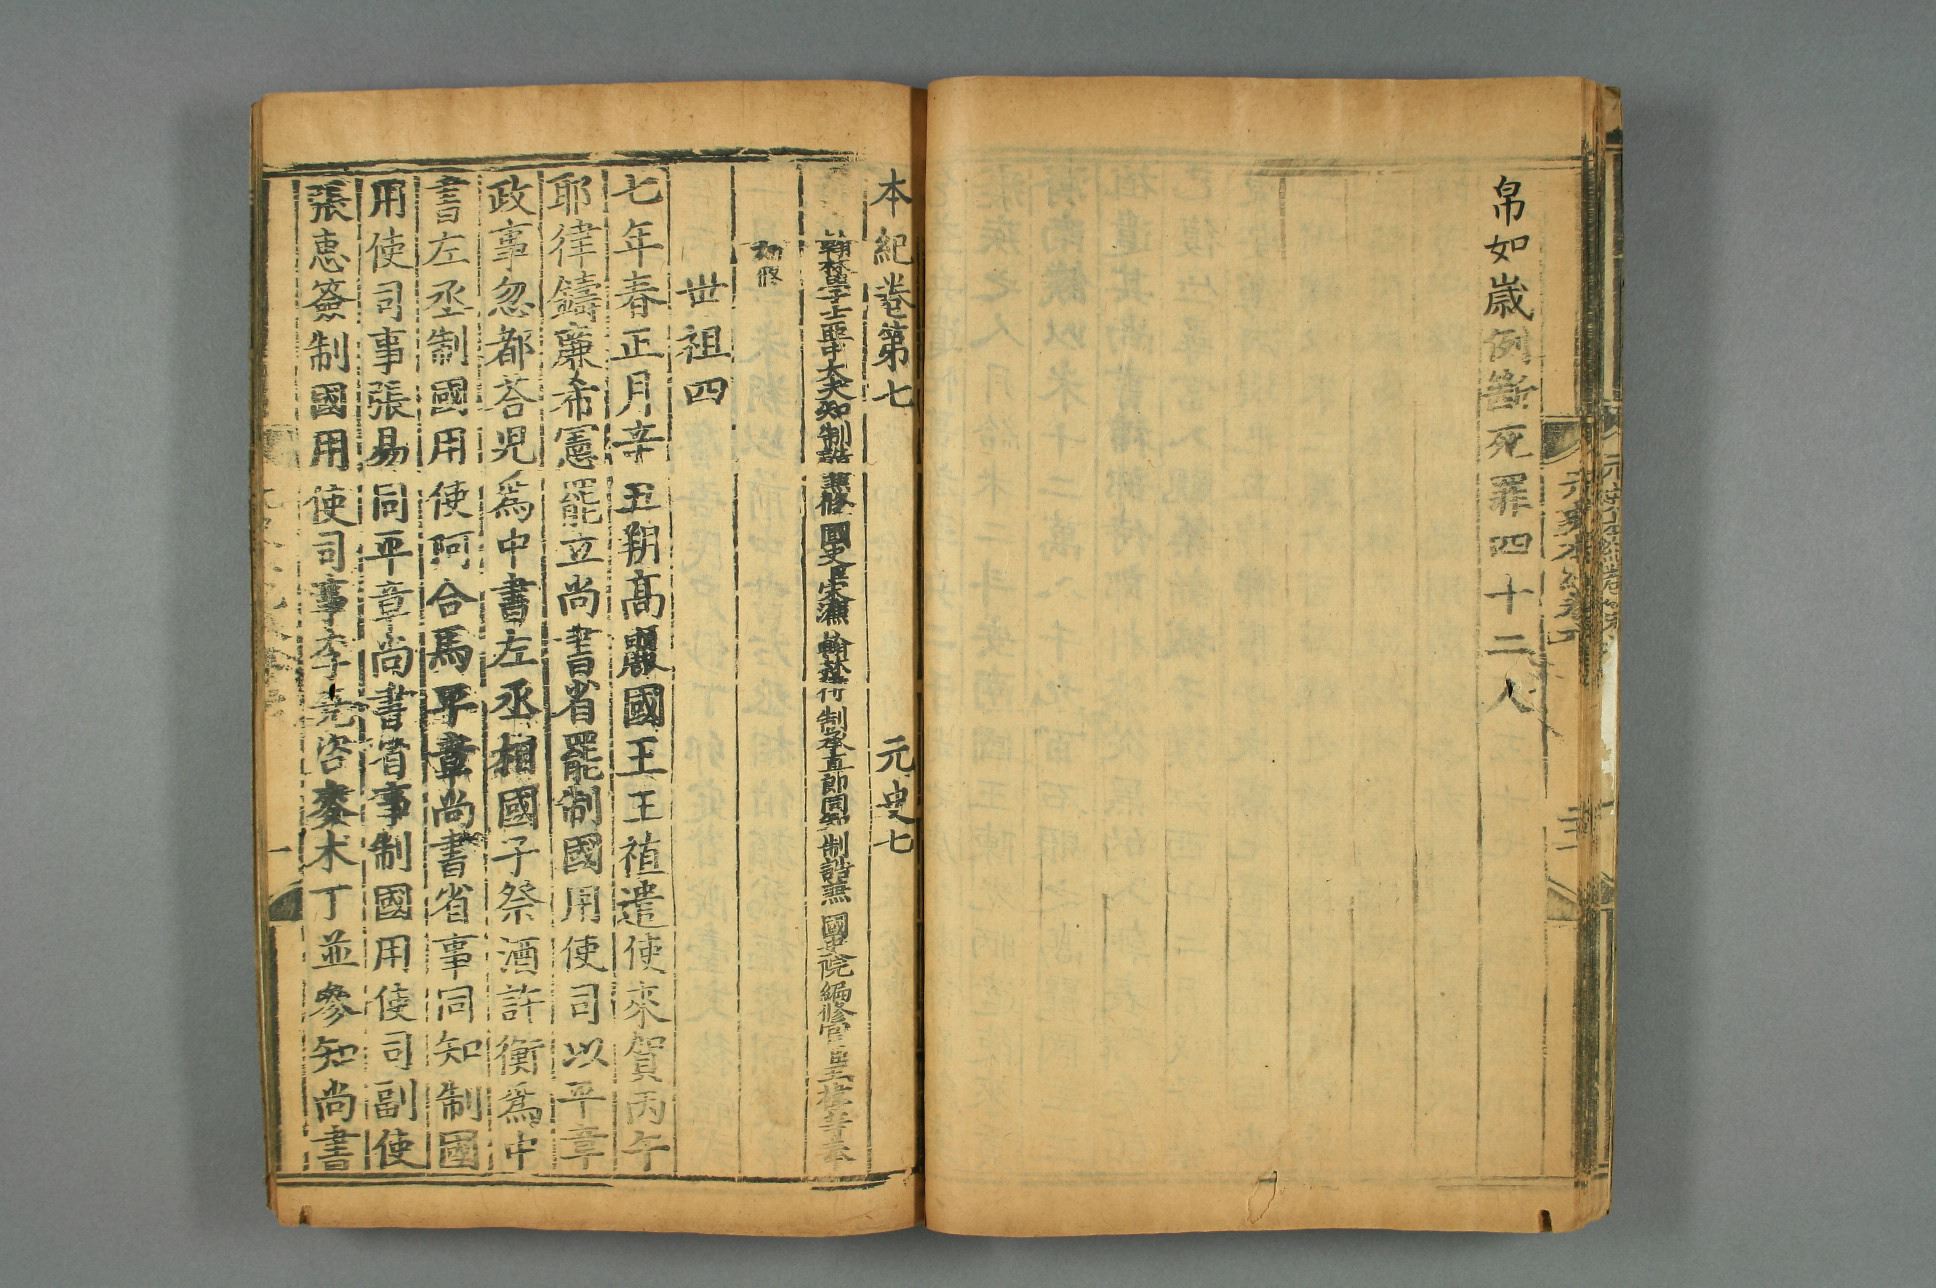 帛如歲例斷死罪四十二人
本紀卷第七 元史七
翰林學士亞中大夫知制誥兼修國史臣宋濂 翰林待制承直郎同知制誥兼國史院編修官臣王禕等奉
勑修
世祖四
七年春正月辛丑朔高麗國王王禃遣使來賀丙午
耶律鑄廉希憲罷立尚書省罷制國用使司以平章
政事忽都荅兒爲中書左丞相國子祭酒許衡爲中
書左丞制國用使阿合馬平章尚書省事同知制國
用使司事張易同平章尚書省事制國用使司副使
張惠簽制國用使司事李堯咨麥朮丁並參知尚書
一